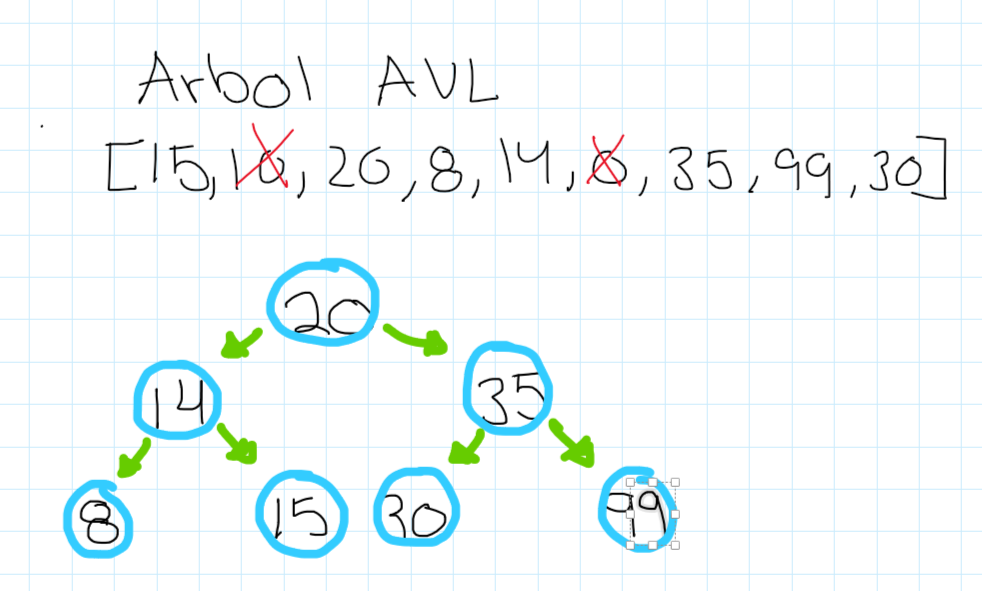 Arbol AVL
[15, 10, 20, 8, 14, 0, 35, 99, 30]
20
14 35
8 15 30 99